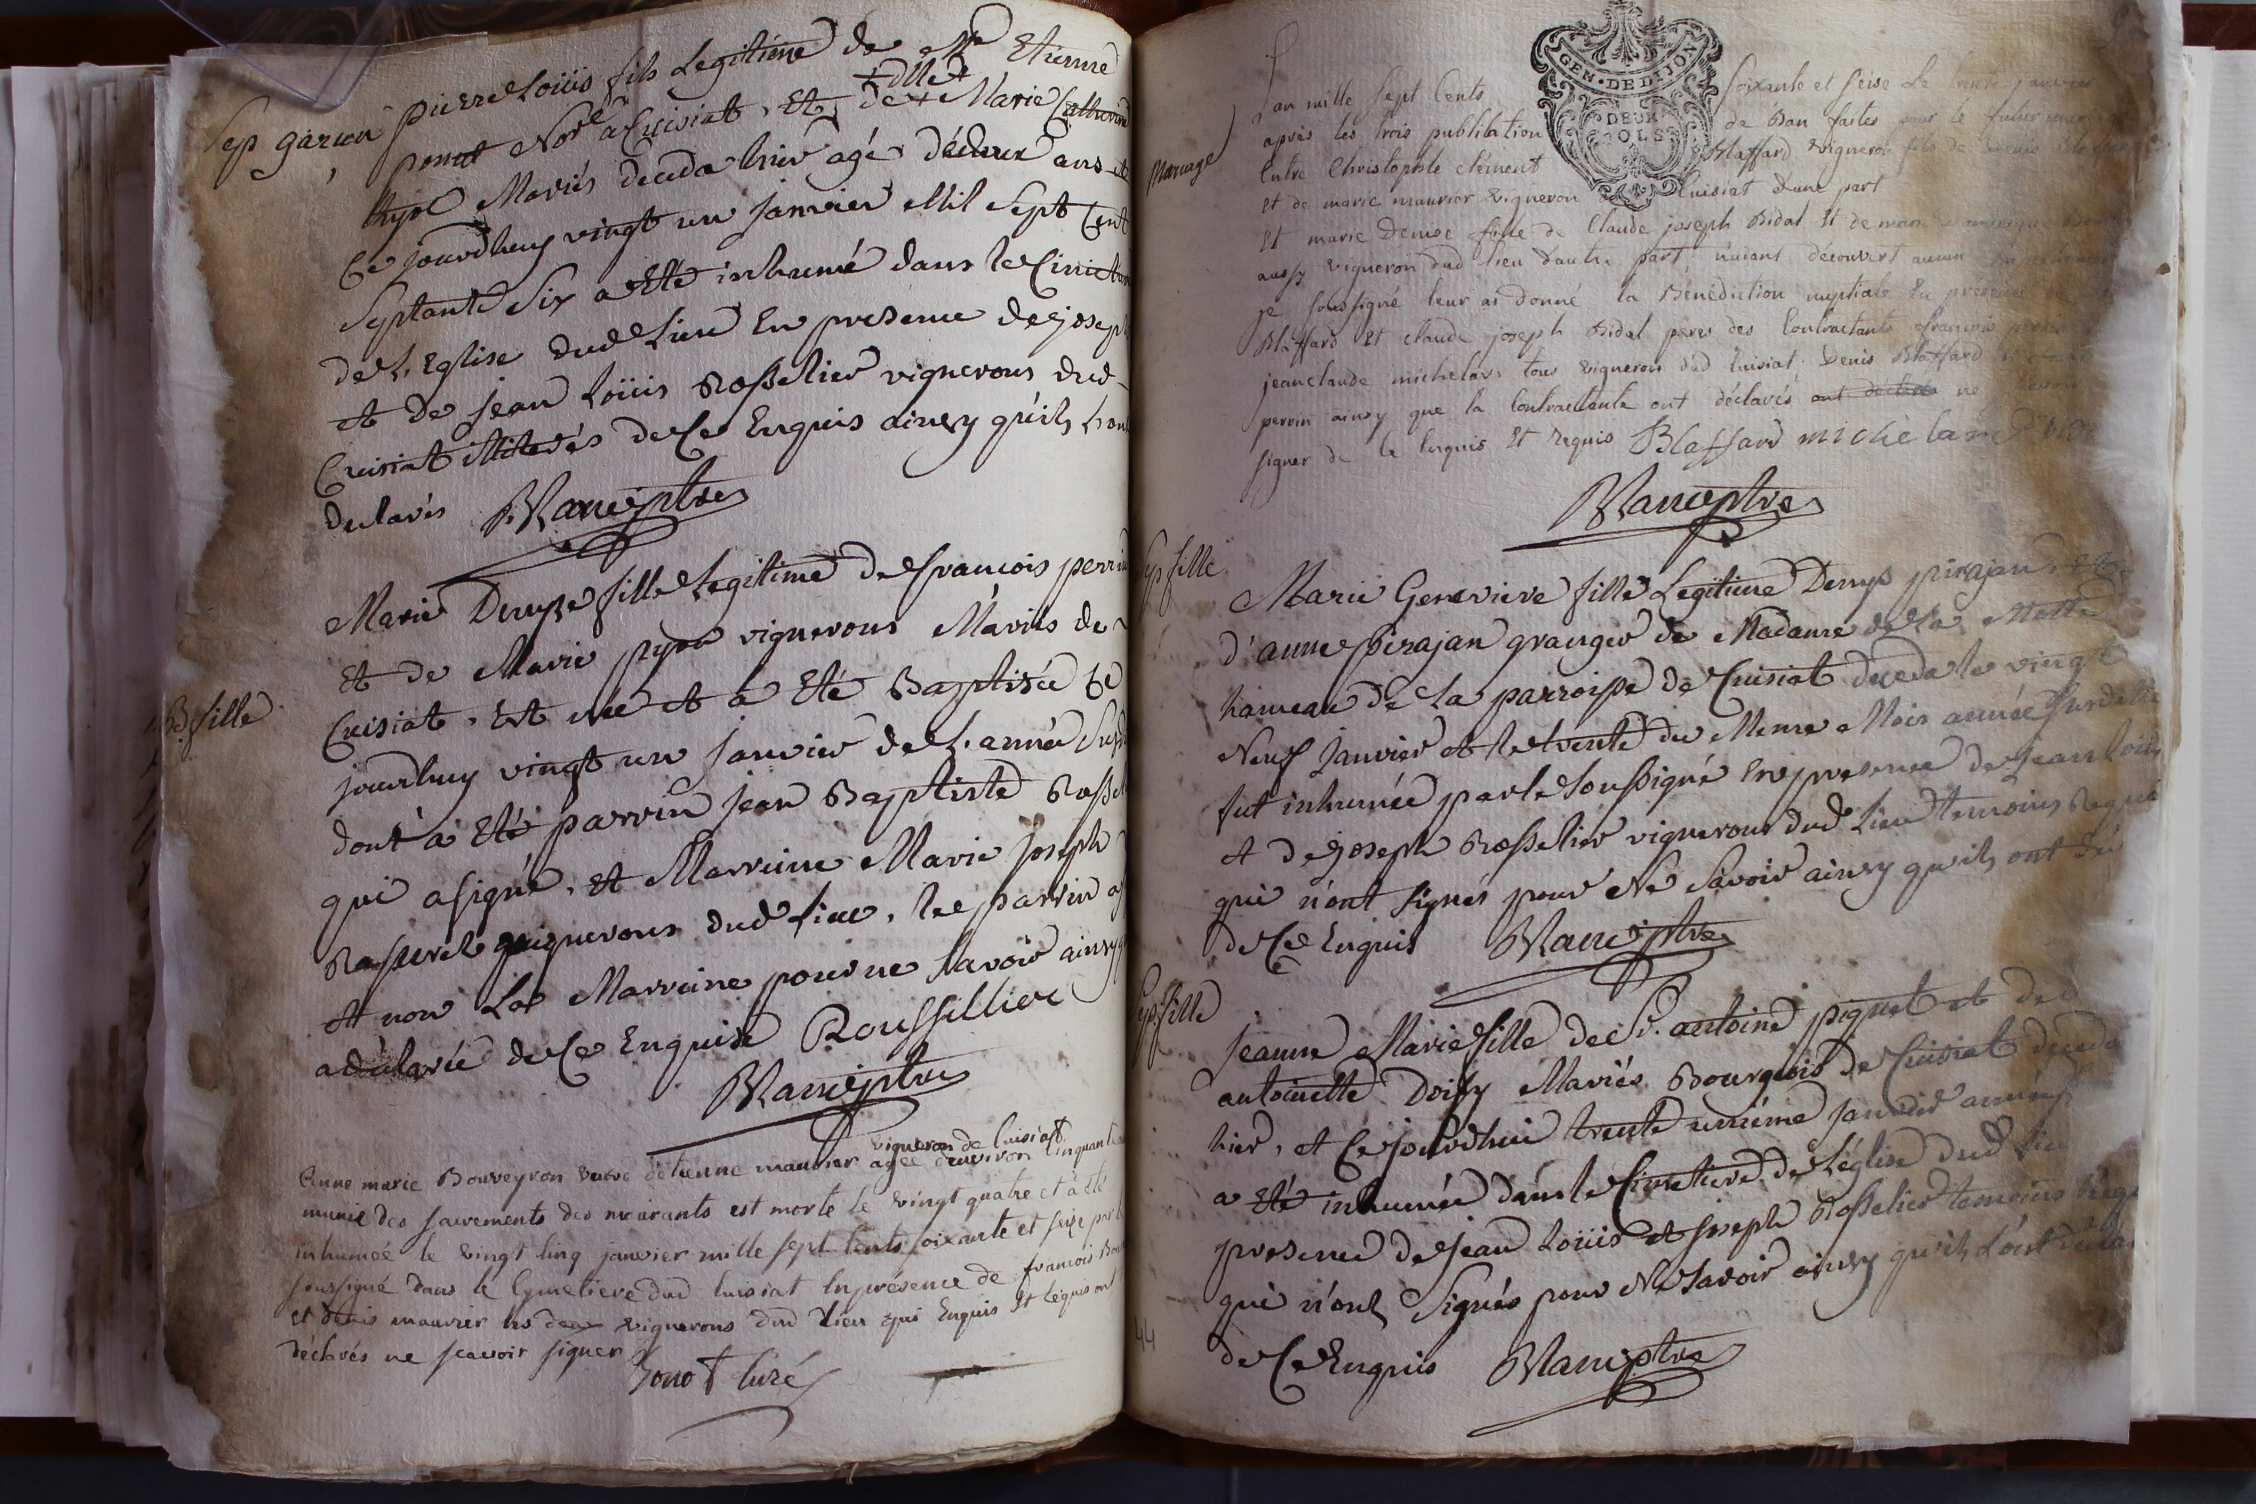 Sep garçon
pierre Loüis fils Legitime de Me Etienne
ponat Nore a Cuisiat, Et de dlle Marie Catherine
Mariés deceda hier agé ans et
Ce jourdhuy vingt un janvier Mil Sept Cent
Septante Six a Eté inhumé dans le
de L'Eglise dud Lieu En presence de joseph
et de jean Loüis Rosselier vignerons dud
Cuisiat illiterés de Ce Enquis ainsy qu'ils L'ont
declarés Vance ptre
B. fille
Marie Denyse fille Legitime de françois perrin
et de Marie vignerons Mariés de
Cuisiat, Est née et a Eté Baptisée Ce
jourdhuy vingt un janvier de L'année
dont a Eté parrin jean Baptiste
qui a signé, et Marraine Marie joseph
vignerons dud Lieu, le parrin
et non La Marraine pour ne Savoir ainsy
a déclarée de Ce Enquise Roussillier
Vance ptre
vigneron de Cuisiat
Anne marie Bouveyron veuve d'etienne maurier agée d'environ Cinquante
munie des sacrements des mourants est morte le vingt quatre et à été
inhumée le vingt Cinq janvier mille sept Cents soixante et seize par le
soussigné dans le Cymetiere dud Cuisiat En présence de françois
et denis maurier les deux vignerons dud Lieu qui Enquis et requis ont
déclarés ne scavoir signer
Curé
GEN. DE DIJON
DEUX
SOLS
Mariage
L'an mille sept Cents soixante et seise Le
après les trois publication de Ban faites pour le futur
Entre Christophle clement Blaffard vigneron fils de
et de marie maurier vigneron Cuisiat d'une part
Et marie Denise fille de Claude joseph Bidal et de
aussy vigneron dud lieu d'autre part, n'aiant découvert aucun
je soussigné leur ai donné la Bénédiction nuptiale En présence
Blaffard et claude joseph Bidal peres des Contractants françois
jean claude michelard tous vignerons dud Cuisiat. Denis Blaffard
perrin ainsy que la Contractante ont déclarés ont déclaré ne
signer de Ce Enquis et requis Blaffard
Vance ptre
Sep fille
Marie Genevieve fille Legitime Denys pirajan Et
d'anne pirajan granger de Madame de La Motte
hameau de La parroisse de Cuisiat deceda le vingt
Neuf Janvier et le trente du Meme Mois année
fut inhumée par le soussigné En presence de jean Loüis
et de joseph Rosselier vignerons dud Lieu temoins
qui n'ont signés pour Ne Savoir ainsy qu'ils ont
de Ce Enquis Vance ptre
Sep fille
jeanne Marie fille de Sr. antoine piquet et de
antoinette Doisy Mariés Bourgeois de Cuisiat deceda
hier, et Ce jourdhui trente unième janvier année
a Eté inhumée dans le Cimetiere de L'église dud Lieu
presence de jean Loüis et joseph Rosselier temoins
qui n'ont Signés pour Ne Savoir ainsy qu'ils L'ont
de Ce Enquis Vance ptre
44